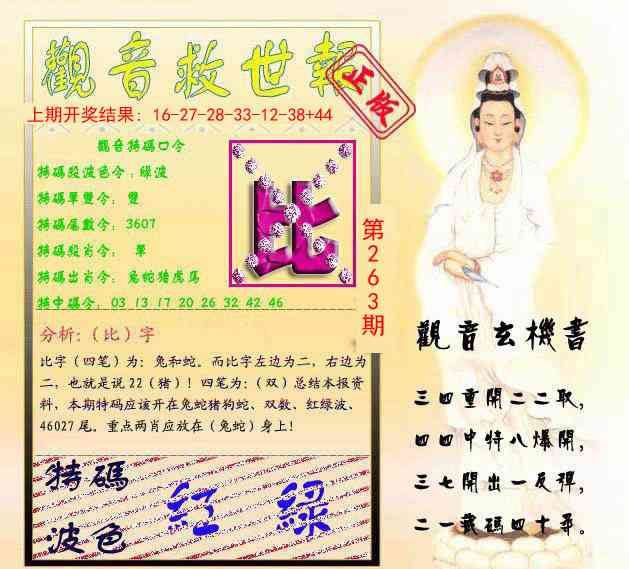 觀音救世報
正版
上期开奖结果：16-27-28-33-12-38+44
觀音特碼口令
特碼段波色令：綠波
特碼單雙令：雙
特碼尾數令：3607
特碼段肖令：單
特碼出肖令：兔蛇猪虎馬
特中碼令：03 13 17 20 26 32 42 46
比
第263期
分析:（比）字
比字（四笔）为：兔和蛇。而比字左边为二，右边为
二，也就是说22（猪）！四笔为：（双）总结本报资
料，本期特码应该开在兔蛇猪狗蛇、双数、红绿波、
46027尾。重点两肖应放在（兔蛇）身上！
特碼
波色
紅 綠
觀音玄機書
三四重開二二取，
四四中特八爆開，
三七開出一反彈，
二一載碼四十尋。